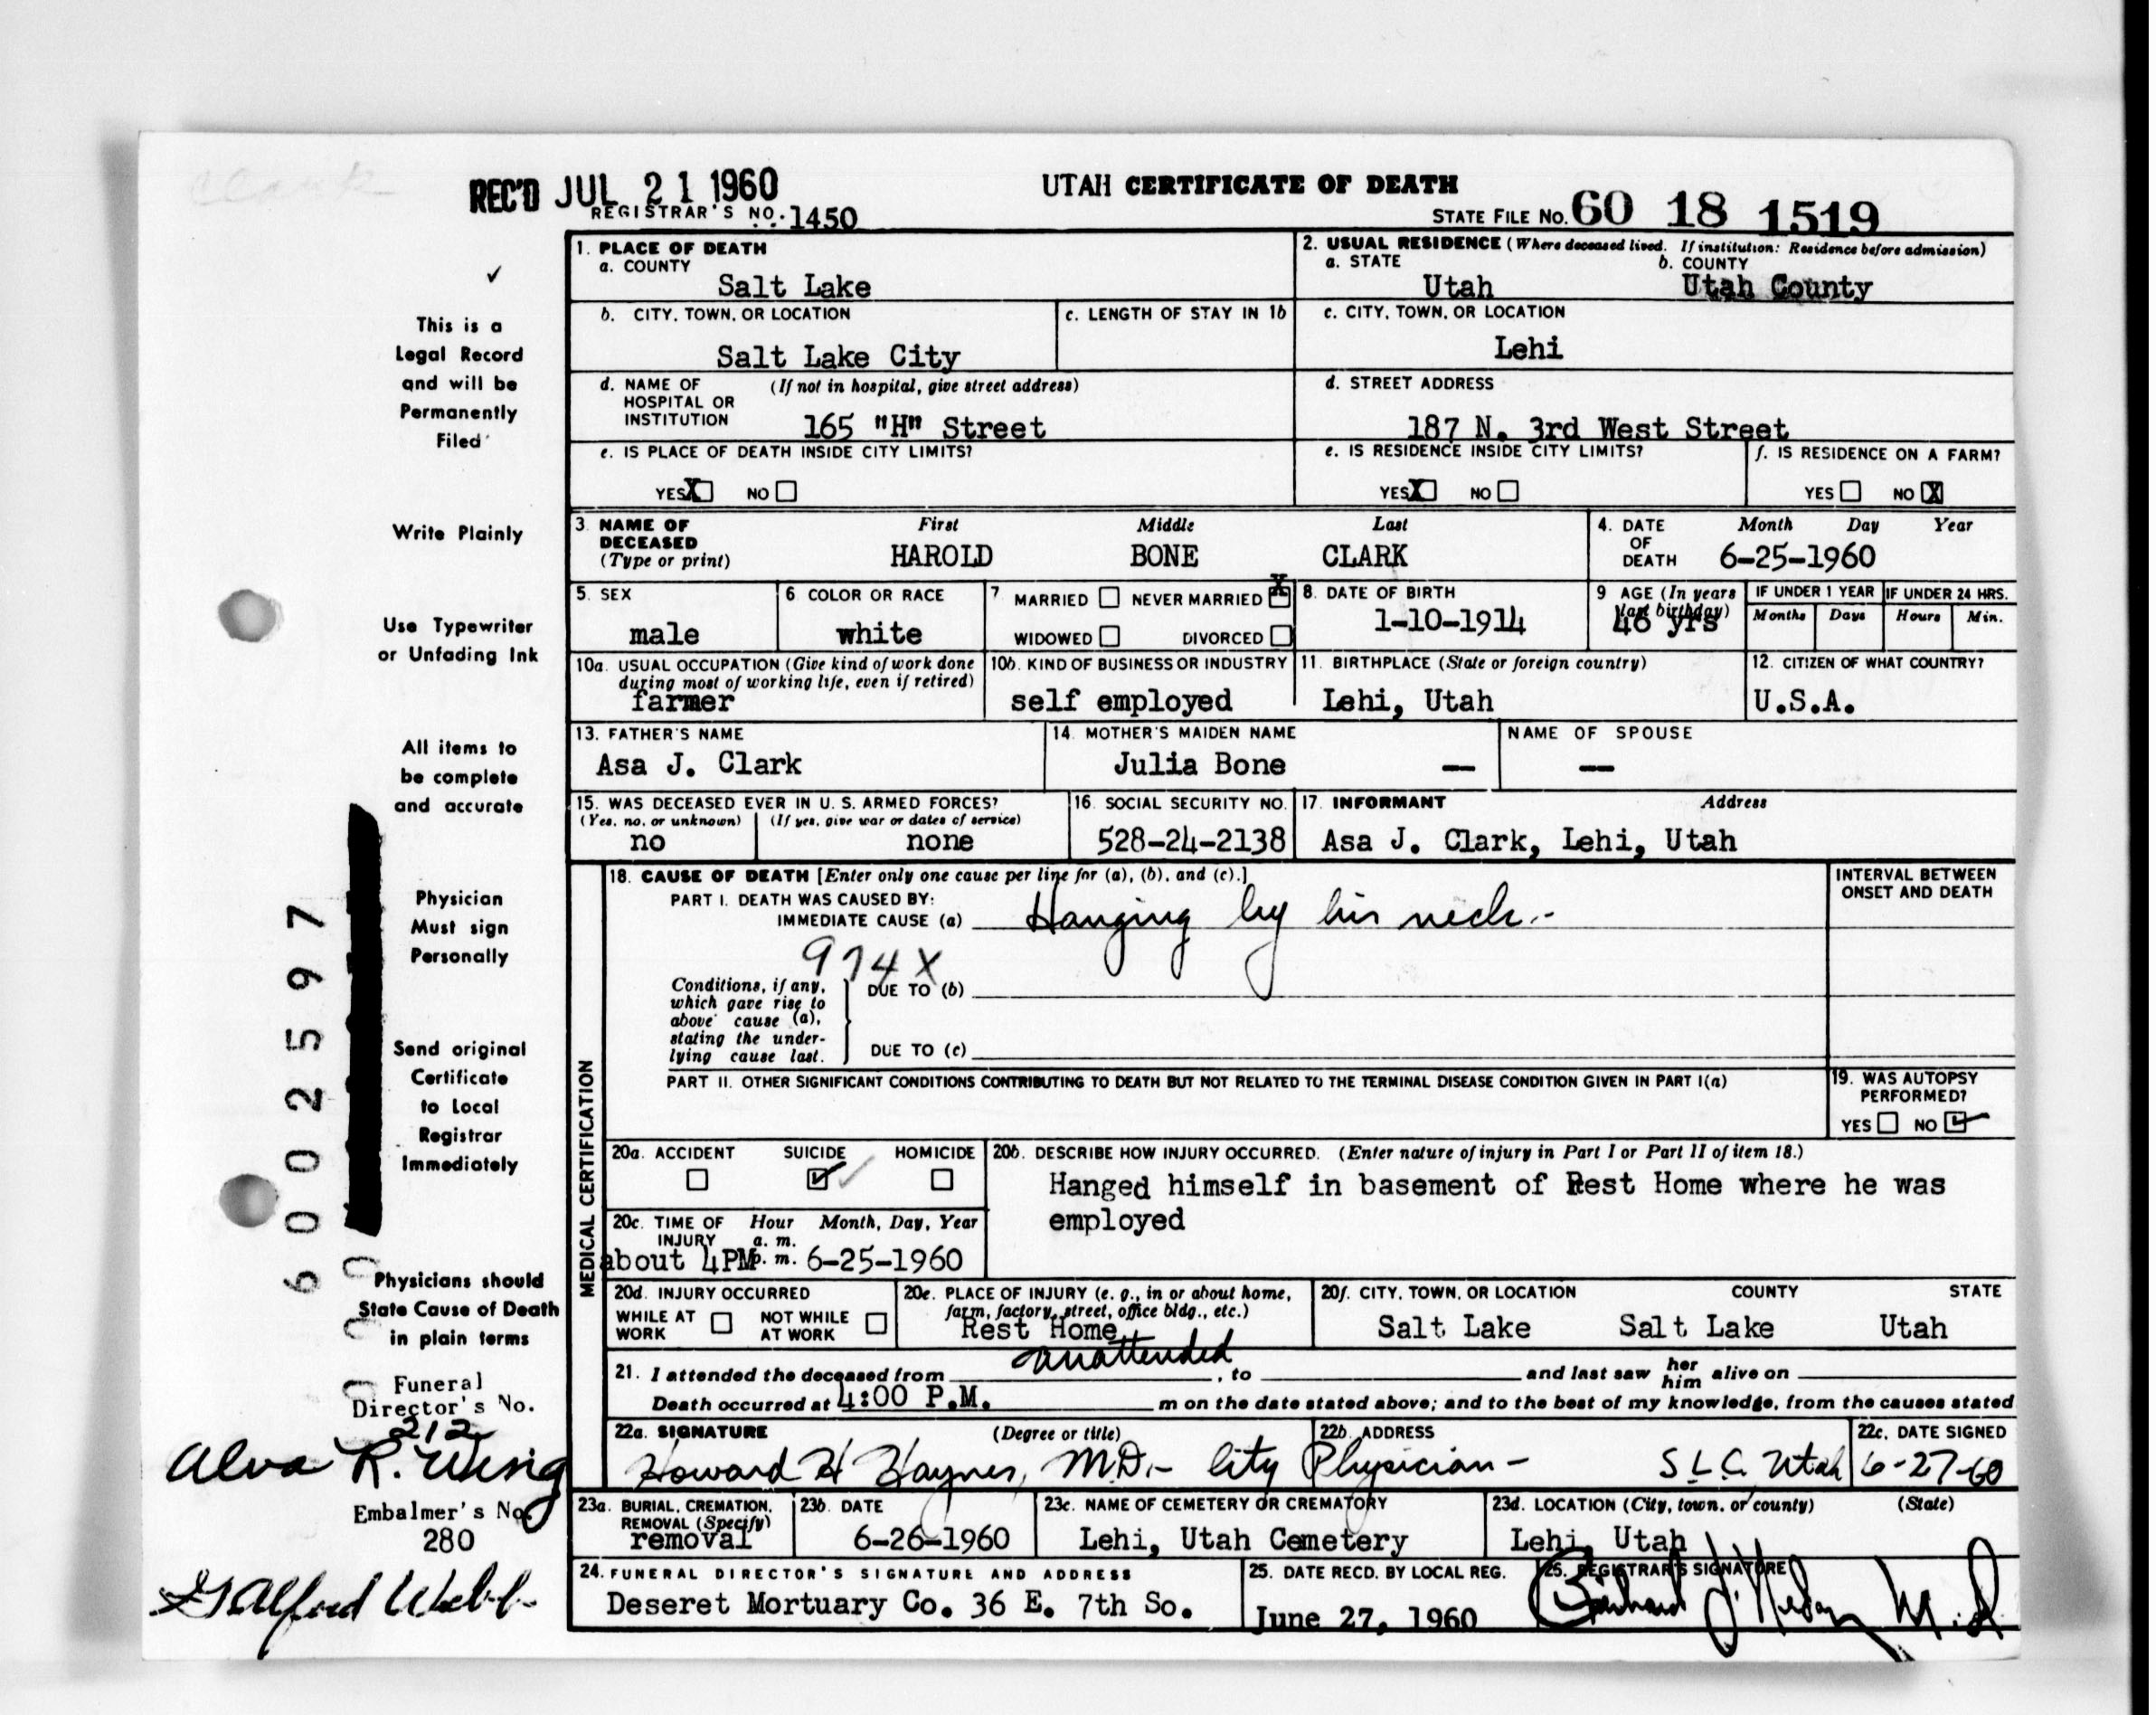 Clark
REC'D JUL 21 1960
UTAH CERTIFICATE OF DEATH
REGISTRAR'S NO. 1450
STATE FILE NO. 60 18 1519
1. PLACE OF DEATH
a. COUNTY
Salt Lake
2. USUAL RESIDENCE (Where deceased lived. If institution: Residence before admission)
a. STATE
b. COUNTY
Utah
Utah County
b. CITY, TOWN, OR LOCATION
Salt Lake City
c. LENGTH OF STAY IN 1b
c. CITY, TOWN, OR LOCATION
Lehi
d. NAME OF HOSPITAL OR INSTITUTION
(If not in hospital, give street address)
165 "H" Street
d. STREET ADDRESS
187 N. 3rd West Street
e. IS PLACE OF DEATH INSIDE CITY LIMITS?
YES X NO
e. IS RESIDENCE INSIDE CITY LIMITS?
YES X NO
f. IS RESIDENCE ON A FARM?
YES NO X
3. NAME OF DECEASED
(Type or print)
First
Middle
Last
HAROLD
BONE
CLARK
4. DATE OF DEATH
Month Day Year
6-25-1960
5. SEX
male
6 COLOR OR RACE
white
7 MARRIED NEVER MARRIED X
WIDOWED DIVORCED
8. DATE OF BIRTH
1-10-1914
9 AGE (In years last birthday)
46 yrs
IF UNDER 1 YEAR
Months Days
IF UNDER 24 HRS.
Hours Min.
10a. USUAL OCCUPATION (Give kind of work done during most of working life, even if retired)
farmer
10b. KIND OF BUSINESS OR INDUSTRY
self employed
11. BIRTHPLACE (State or foreign country)
Lehi, Utah
12. CITIZEN OF WHAT COUNTRY?
U.S.A.
13. FATHER'S NAME
Asa J. Clark
14. MOTHER'S MAIDEN NAME
Julia Bone —
NAME OF SPOUSE
—
15. WAS DECEASED EVER IN U. S. ARMED FORCES?
(Yes, no, or unknown)
(If yes, give war or dates of service)
no
none
16. SOCIAL SECURITY NO.
528-24-2138
17. INFORMANT
Address
Asa J. Clark, Lehi, Utah
MEDICAL CERTIFICATION
18. CAUSE OF DEATH [Enter only one cause per line for (a), (b), and (c).]
PART I. DEATH WAS CAUSED BY:
IMMEDIATE CAUSE (a) Hanging by his neck.-
974X
Conditions, if any, which gave rise to above cause (a), stating the underlying cause last.
DUE TO (b)
DUE TO (c)
INTERVAL BETWEEN ONSET AND DEATH
PART II. OTHER SIGNIFICANT CONDITIONS CONTRIBUTING TO DEATH BUT NOT RELATED TO THE TERMINAL DISEASE CONDITION GIVEN IN PART I(a)
19. WAS AUTOPSY PERFORMED?
YES NO ✓
20a. ACCIDENT
SUICIDE ✓
HOMICIDE
20b. DESCRIBE HOW INJURY OCCURRED. (Enter nature of injury in Part I or Part II of item 18.)
Hanged himself in basement of Rest Home where he was
employed
20c. TIME OF INJURY
Hour a. m. p. m.
Month, Day, Year
about 4PM 6-25-1960
20d. INJURY OCCURRED
WHILE AT WORK
NOT WHILE AT WORK
20e. PLACE OF INJURY (e. g., in or about home, farm, factory, street, office bldg., etc.)
Rest Home
20f. CITY, TOWN, OR LOCATION
COUNTY
STATE
Salt Lake
Salt Lake
Utah
21. I attended the deceased from unattended, to and last saw her him alive on
Death occurred at 4:00 P.M. m on the date stated above; and to the best of my knowledge, from the causes stated
22a. SIGNATURE
(Degree or title)
Howard H Haynes, M.D.- City Physician-
22b. ADDRESS
S L C. Utah
22c. DATE SIGNED
6-27-60
23a. BURIAL, CREMATION, REMOVAL (Specify)
removal
23b. DATE
6-26-1960
23c. NAME OF CEMETERY OR CREMATORY
Lehi, Utah Cemetery
23d. LOCATION (City, town, or county)
(State)
Lehi, Utah
24. FUNERAL DIRECTOR'S SIGNATURE AND ADDRESS
Deseret Mortuary Co. 36 E. 7th So.
25. DATE RECD. BY LOCAL REG.
June 27, 1960
26. REGISTRAR'S SIGNATURE
M.D.
✓
This is a
Legal Record
and will be
Permanently
Filed
Write Plainly
Use Typewriter
or Unfading Ink
All items to
be complete
and accurate
Physician
Must sign
Personally
Send original
Certificate
to Local
Registrar
Immediately
Physicians should
State Cause of Death
in plain terms
Funeral
Director's No.
212
Alva R. Wing
Embalmer's No.
280
Alford Webb
6002597